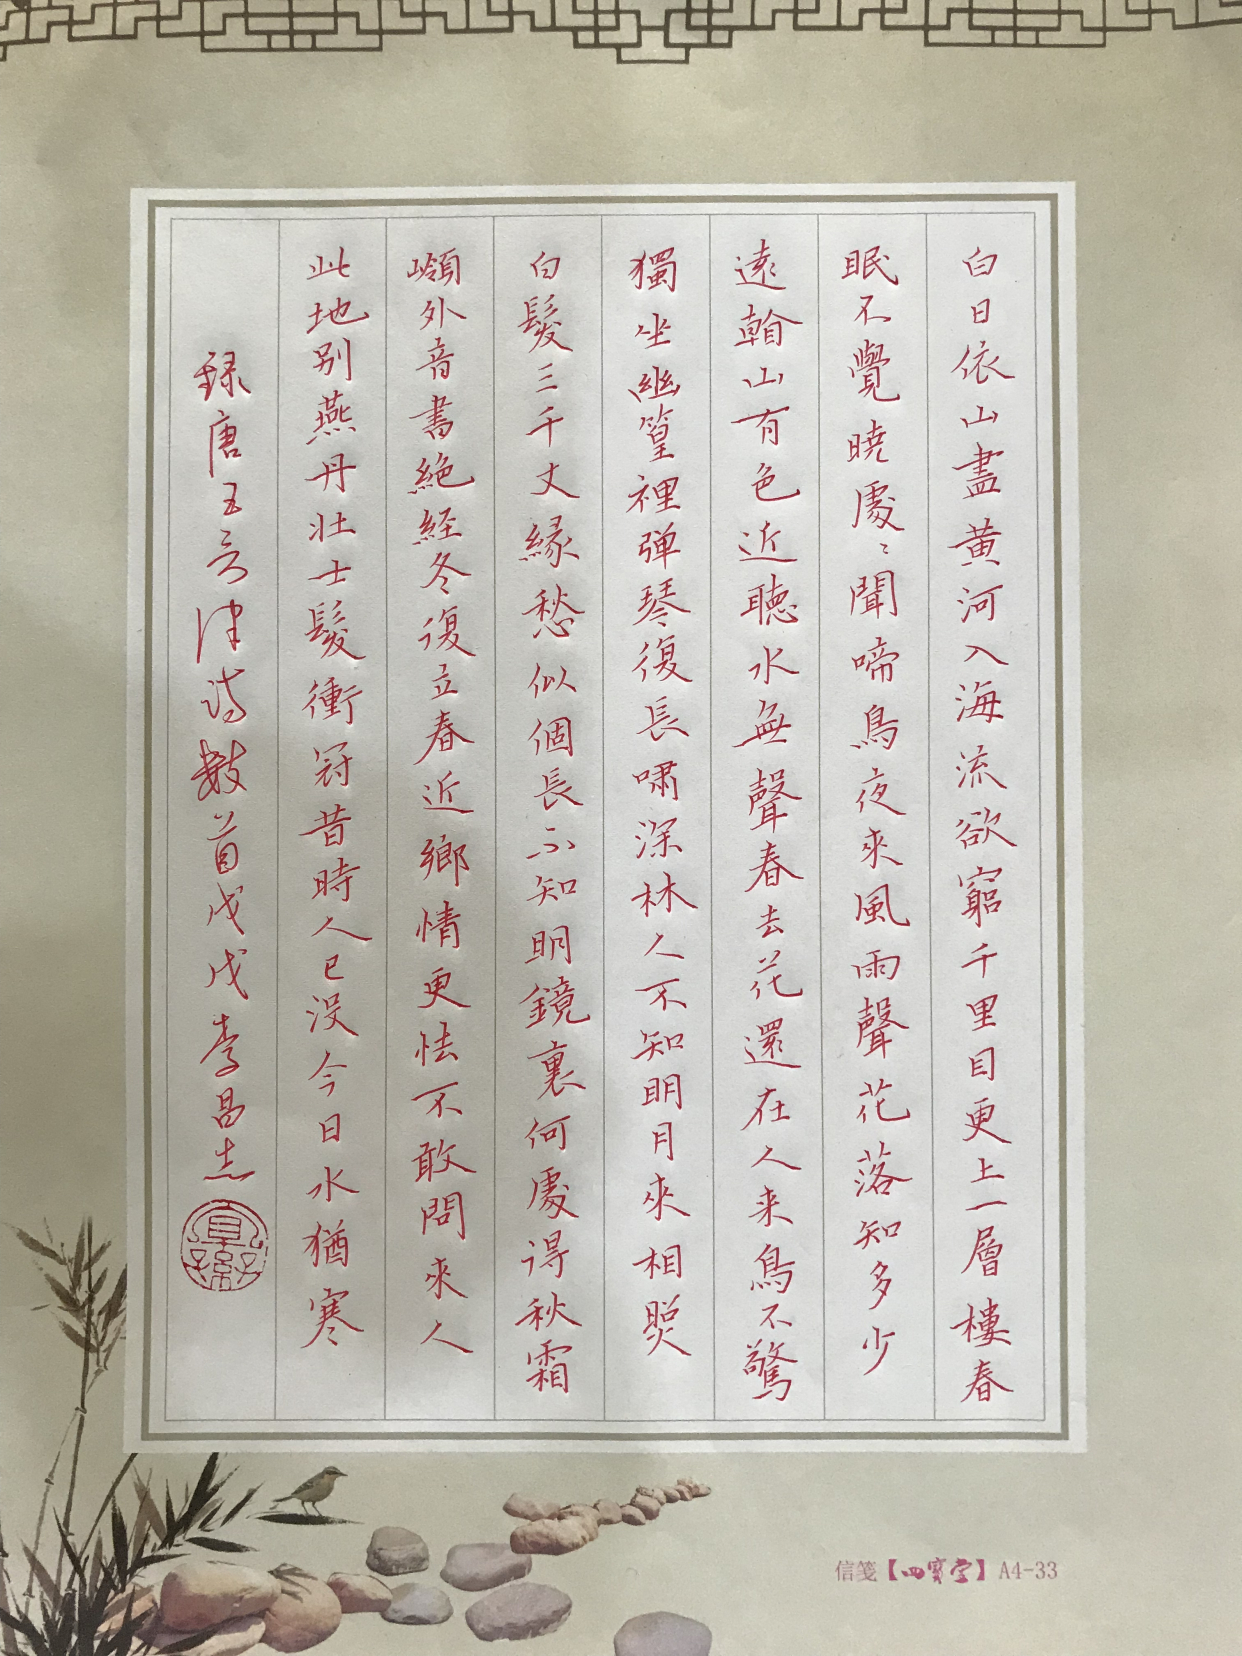 白日依山盡黄河入海流欲窮千里目更上一層樓春
眠不覺曉處〻聞啼鳥夜來風雨聲花落知多少
遠看山有色近聽水無聲春去花還在人来鳥不驚
獨坐幽篁裡弹琴復長啸深林人不知明月來相照
白髮三千丈緣愁似個長不知明鏡裏何處得秋霜
嶺外音書絶経冬復立春近鄉情更怯不敢問來人
此地别燕丹壮士髮衝冠昔時人已没今日水猶寒
録唐五言律詩数首戊戌李昌志
信笺【四寶堂】A4-33